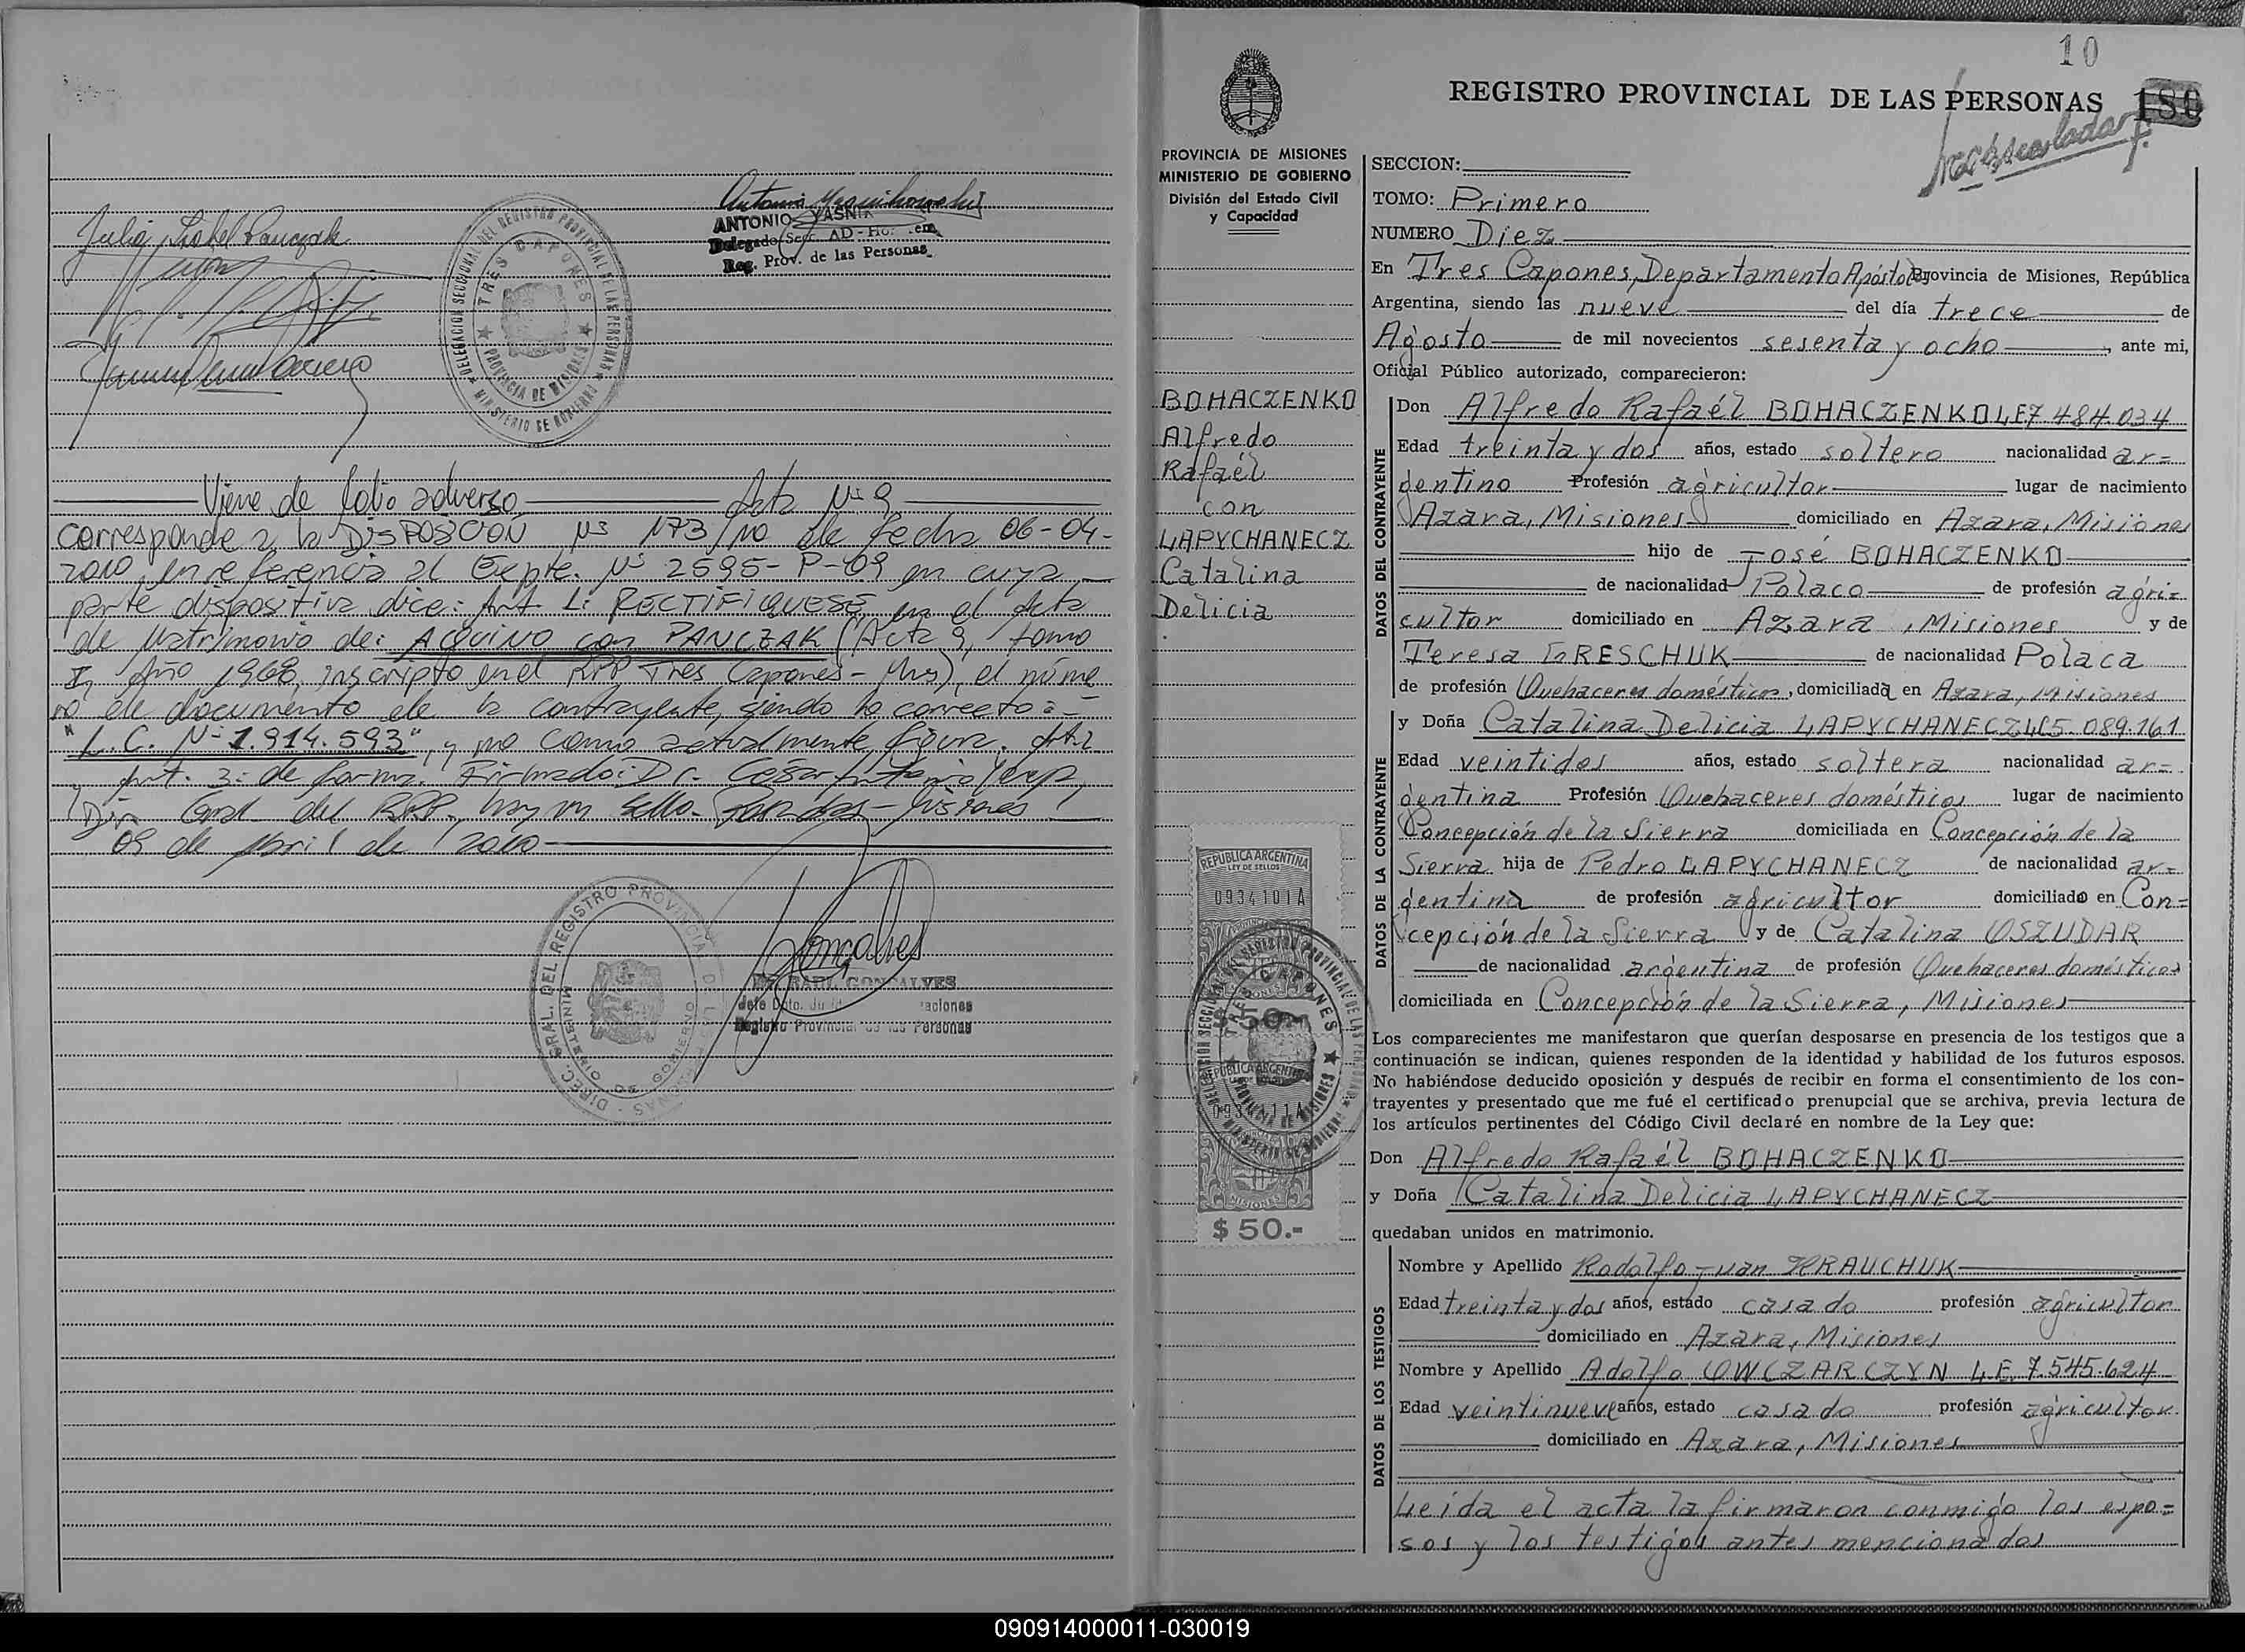 Julia Isabel Panczak
ANTONIO YASNI
Delegado Secc. AD-Ho
Reg. Prov. de las Personas
DELEGACION SECCIONAL DEL REGISTRO PROVINCIAL DE LAS PERSONAS
TRES CAPONES
PROVINCIA DE MISIONES
MINISTERIO DE GOBIERNO
Viene de folio adverso Acta Nº 9
Corresponde a la DISPOSICION Nº 173/10 de fecha 06-04-
2010, en referencia al Expte. Nº 2595-P-09 en cuya
parte dispositiva dice: Art 1: RECTIFIQUESE en el Acta
de Matrimonio de: AQUINO con PANCZAK (Acta 9, tomo
I, Año 1968, inscripto en el RPP Tres Capones - Mns), el núme
ro de documento de la contrayente, siendo lo correcto:
"L.C. Nº 1.914.593", y no como actualmente figura. Art. 2
Art. 3: de forma. Firmado: Dr. César Antonio
Dir. Gral. del RPP. hay un sello. Posadas - Misiones
09 de Abril de 2010
DIREC. GRAL. DEL REGISTRO PROVINCIAL DE LAS PERSONAS
MINISTERIO DE GOBIERNO
RAUL GONCALVES
Jefe Dpto.
Registro Provincial de las Personas
10
REGISTRO PROVINCIAL DE LAS PERSONAS
180
PROVINCIA DE MISIONES
MINISTERIO DE GOBIERNO
División del Estado Civil
y Capacidad
BOHACZENKO
Alfredo
Rafaél
con
LAPYCHANECZ
Catalina
Delicia
REPUBLICA ARGENTINA
LEY DE SELLOS
0934101A
REPUBLICA ARGENTINA
MISIONES
$ 50.-
SECCION:
TOMO: Primero
NUMERO Diez
En Tres Capones, Departamento Apóstoles Provincia de Misiones, República
Argentina, siendo las nueve del día trece de
Agosto de mil novecientos sesenta y ocho, ante mi,
Oficial Público autorizado, comparecieron:
DATOS DEL CONTRAYENTE
Don Alfredo Rafaél BOHACZENKO L.E 7.484.034
Edad treinta y dos años, estado soltero nacionalidad ar=
gentino Profesión agricultor lugar de nacimiento
Azara, Misiones domiciliado en Azara, Misiones
hijo de José BOHACZENKO
de nacionalidad Polaco de profesión agri=
cultor domiciliado en Azara, Misiones y de
Teresa GRESCHUK de nacionalidad Polaca
de profesión Quehaceres domésticos, domiciliada en Azara, Misiones
DATOS DE LA CONTRAYENTE
y Doña Catalina Delicia LAPYCHANECZ LC 5.089.161
Edad veintidos años, estado soltera nacionalidad ar=
gentina Profesión Quehaceres domésticos lugar de nacimiento
Concepción de la Sierra domiciliada en Concepción de la
Sierra hija de Pedro LAPYCHANECZ de nacionalidad ar=
gentina de profesión agricultor domiciliado en Con=
cepción de la Sierra y de Catalina OSZUDAR
de nacionalidad argentina de profesión Quehaceres domésticos
domiciliada en Concepción de la Sierra, Misiones
Los comparecientes me manifestaron que querían desposarse en presencia de los testigos que a
continuación se indican, quienes responden de la identidad y habilidad de los futuros esposos.
No habiéndose deducido oposición y después de recibir en forma el consentimiento de los con-
trayentes y presentado que me fué el certificado prenupcial que se archiva, previa lectura de
los artículos pertinentes del Código Civil declaré en nombre de la Ley que:
Don Alfredo Rafaél BOHACZENKO
y Doña Catalina Delicia LAPYCHANECZ
quedaban unidos en matrimonio.
DATOS DE LOS TESTIGOS
Nombre y Apellido Rodolfo Juan KRAUCHUK
Edad treinta y dos años, estado casado profesión agricultor
domiciliado en Azara, Misiones
Nombre y Apellido Adolfo OWCZARCZYN L.E. 7.545.624
Edad veintinueve años, estado casado profesión agricultor
domiciliado en Azara, Misiones
Leida el acta la firmaron conmigo los espo=
sos y los testigos antes mencionados
090914000011-030019